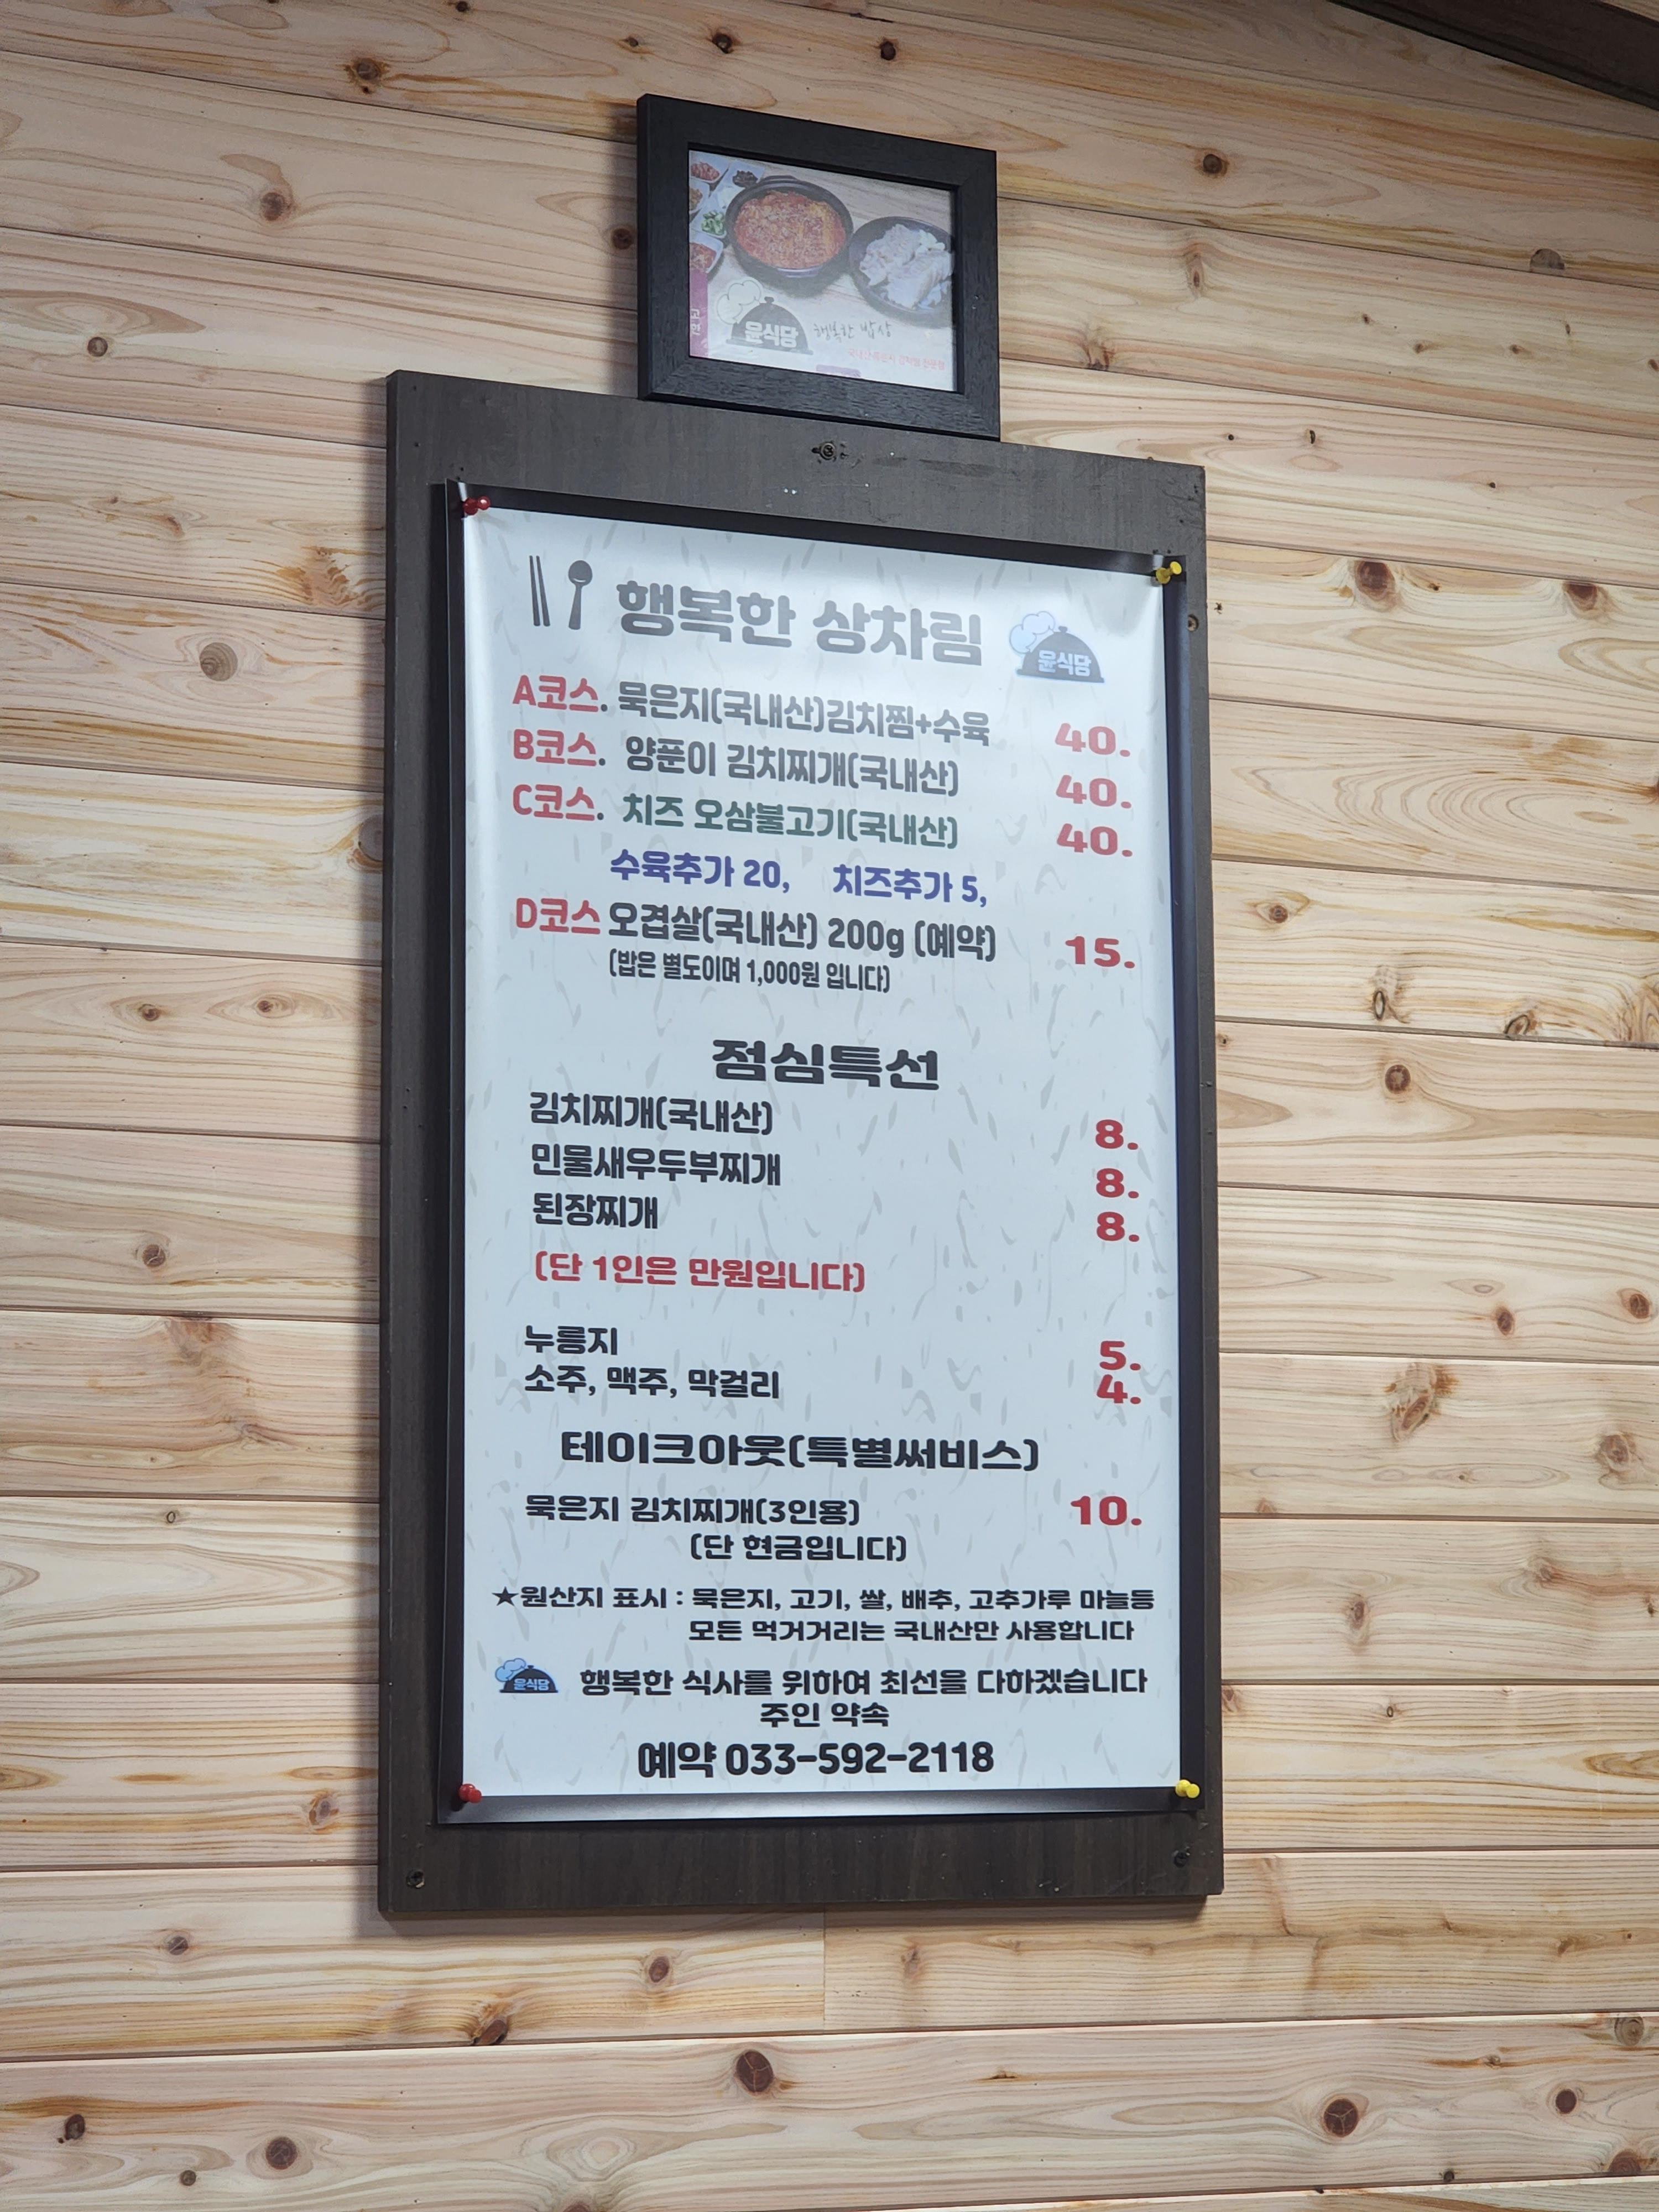 윤식당 행복한 밥상
행복한 상차림 윤식당
A코스. 묵은지(국내산)김치찜+수육 40.
B코스. 양푼이 김치찌개(국내산) 40.
C코스. 치즈 오삼불고기(국내산) 40.
수육추가 20, 치즈추가 5,
D코스 오겹살(국내산) 200g (예약) 15.
(밥은 별도이며 1,000원 입니다)
점심특선
김치찌개(국내산) 8.
민물새우두부찌개 8.
된장찌개 8.
(단 1인은 만원입니다)
누릉지 5.
소주, 맥주, 막걸리 4.
테이크아웃(특별써비스)
묵은지 김치찌개(3인용) 10.
(단 현금입니다)
★원산지 표시 : 묵은지, 고기, 쌀, 배추, 고추가루 마늘등
모든 먹거거리는 국내산만 사용합니다
윤식당 행복한 식사를 위하여 최선을 다하겠습니다
주인 약속
예약 033-592-2118